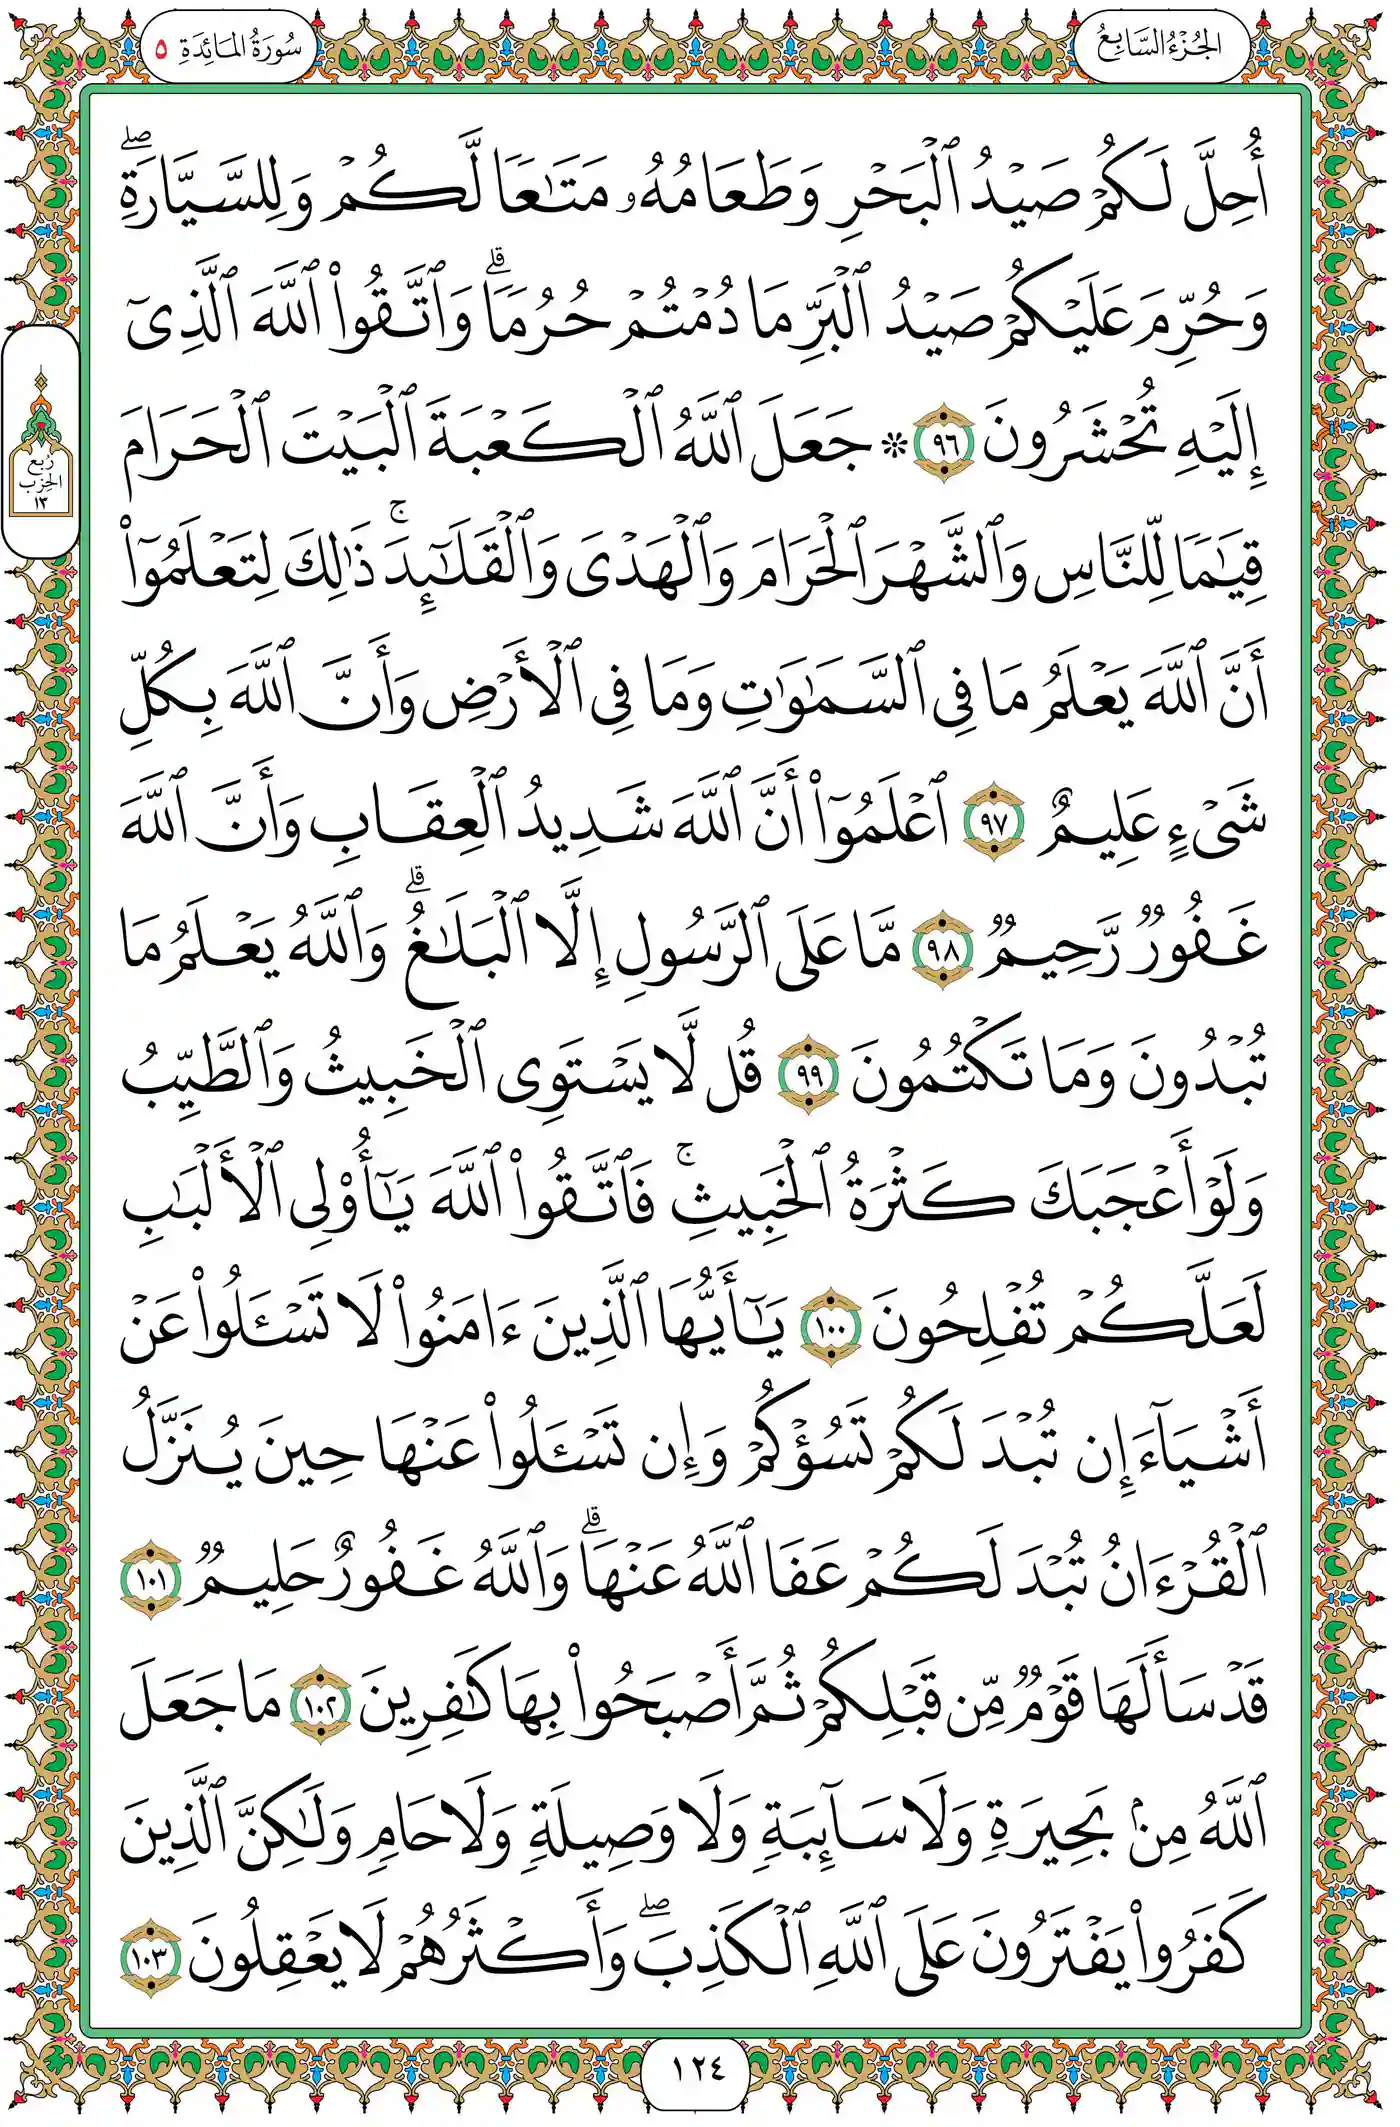 الجُزْءُ السَّابِعُ
سُورَةُ المَائِدَةِ ٥
أُحِلَّ لَكُمْ صَيْدُ ٱلْبَحْرِ وَطَعَامُهُۥ مَتَٰعًا لَّكُمْ وَلِلسَّيَّارَةِۖ
وَحُرِّمَ عَلَيْكُمْ صَيْدُ ٱلْبَرِّ مَا دُمْتُمْ حُرُمًاۗ وَٱتَّقُوا۟ ٱللَّهَ ٱلَّذِىٓ
إِلَيْهِ تُحْشَرُونَ ٩٦ ۞ جَعَلَ ٱللَّهُ ٱلْكَعْبَةَ ٱلْبَيْتَ ٱلْحَرَامَ
قِيَٰمًا لِّلنَّاسِ وَٱلشَّهْرَ ٱلْحَرَامَ وَٱلْهَدْىَ وَٱلْقَلَٰٓئِدَۚ ذَٰلِكَ لِتَعْلَمُوٓا۟
أَنَّ ٱللَّهَ يَعْلَمُ مَا فِى ٱلسَّمَٰوَٰتِ وَمَا فِى ٱلْأَرْضِ وَأَنَّ ٱللَّهَ بِكُلِّ
شَىْءٍ عَلِيمٌ ٩٧ ٱعْلَمُوٓا۟ أَنَّ ٱللَّهَ شَدِيدُ ٱلْعِقَابِ وَأَنَّ ٱللَّهَ
غَفُورٌ رَّحِيمٌ ٩٨ مَّا عَلَى ٱلرَّسُولِ إِلَّا ٱلْبَلَٰغُۗ وَٱللَّهُ يَعْلَمُ مَا
تُبْدُونَ وَمَا تَكْتُمُونَ ٩٩ قُل لَّا يَسْتَوِى ٱلْخَبِيثُ وَٱلطَّيِّبُ
وَلَوْ أَعْجَبَكَ كَثْرَةُ ٱلْخَبِيثِۚ فَٱتَّقُوا۟ ٱللَّهَ يَٰٓأُو۟لِى ٱلْأَلْبَٰبِ
لَعَلَّكُمْ تُفْلِحُونَ ١٠٠ يَٰٓأَيُّهَا ٱلَّذِينَ ءَامَنُوا۟ لَا تَسْـَٔلُوا۟ عَنْ
أَشْيَآءَ إِن تُبْدَ لَكُمْ تَسُؤْكُمْ وَإِن تَسْـَٔلُوا۟ عَنْهَا حِينَ يُنَزَّلُ
ٱلْقُرْءَانُ تُبْدَ لَكُمْ عَفَا ٱللَّهُ عَنْهَاۗ وَٱللَّهُ غَفُورٌ حَلِيمٌ ١٠١
قَدْ سَأَلَهَا قَوْمٌ مِّن قَبْلِكُمْ ثُمَّ أَصْبَحُوا۟ بِهَا كَٰفِرِينَ ١٠٢ مَا جَعَلَ
ٱللَّهُ مِنۢ بَحِيرَةٍ وَلَا سَآئِبَةٍ وَلَا وَصِيلَةٍ وَلَا حَامٍ وَلَٰكِنَّ ٱلَّذِينَ
كَفَرُوا۟ يَفْتَرُونَ عَلَى ٱللَّهِ ٱلْكَذِبَۖ وَأَكْثَرُهُمْ لَا يَعْقِلُونَ ١٠٣
رُبع
الحِزب
١٣
١٢٤